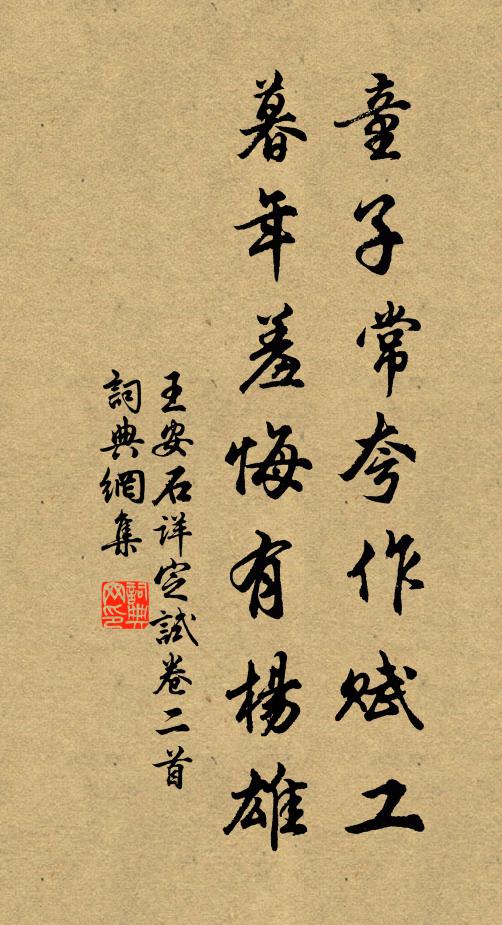 童子常夸作赋工
暮年羞悔有楊雄
王安石详定試卷二首
詞典網集
詞典网印